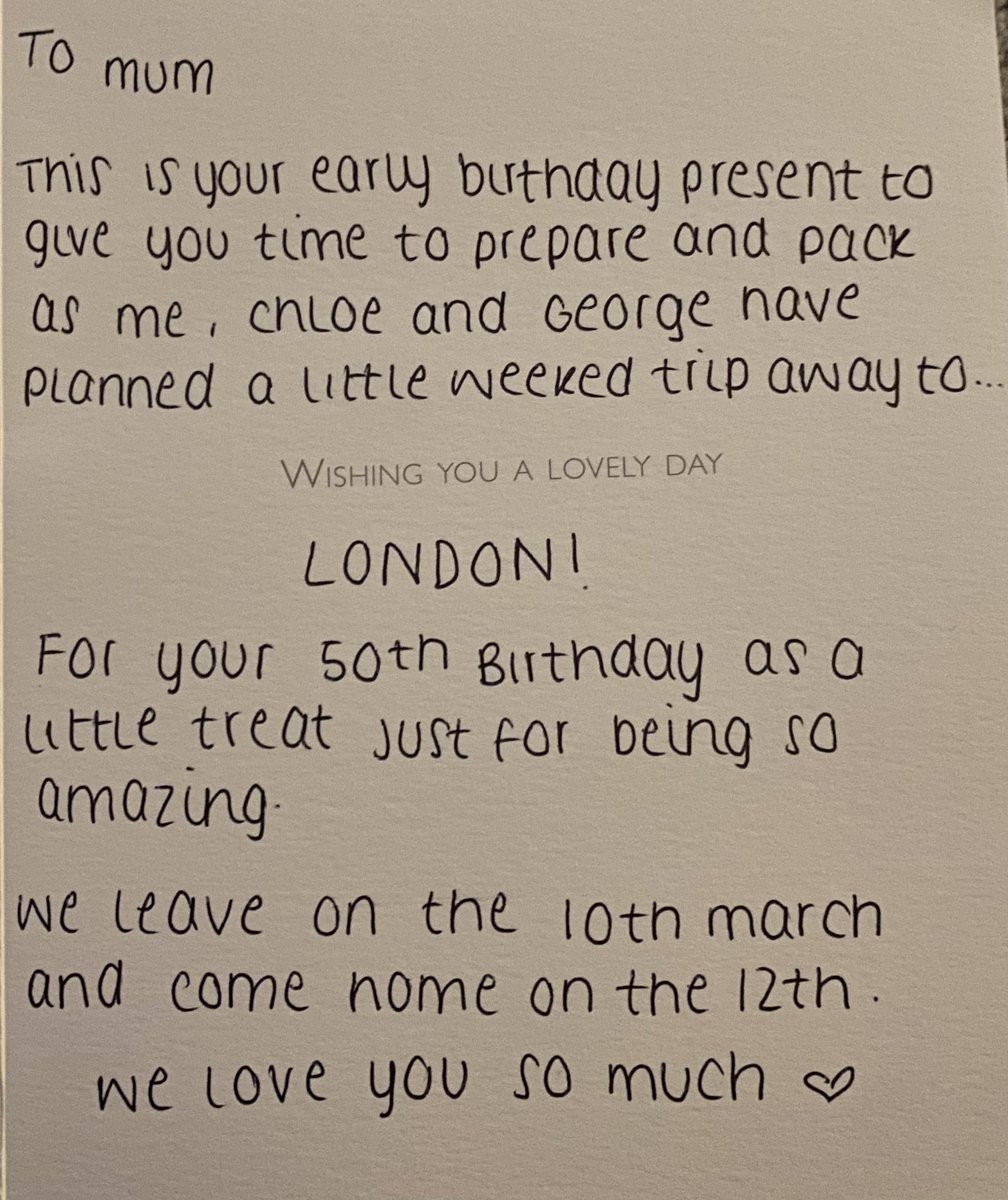 To mum
This is your early birthday present to
give you time to prepare and pack
as me, Chloe and George have
planned a little weeked trip away to...
WISHING YOU A LOVELY DAY
LONDON!
For your 50th Birthday as a
little treat just for being so
amazing.
We leave on the 10th march
and come home on the 12th.
We love you so much ♡